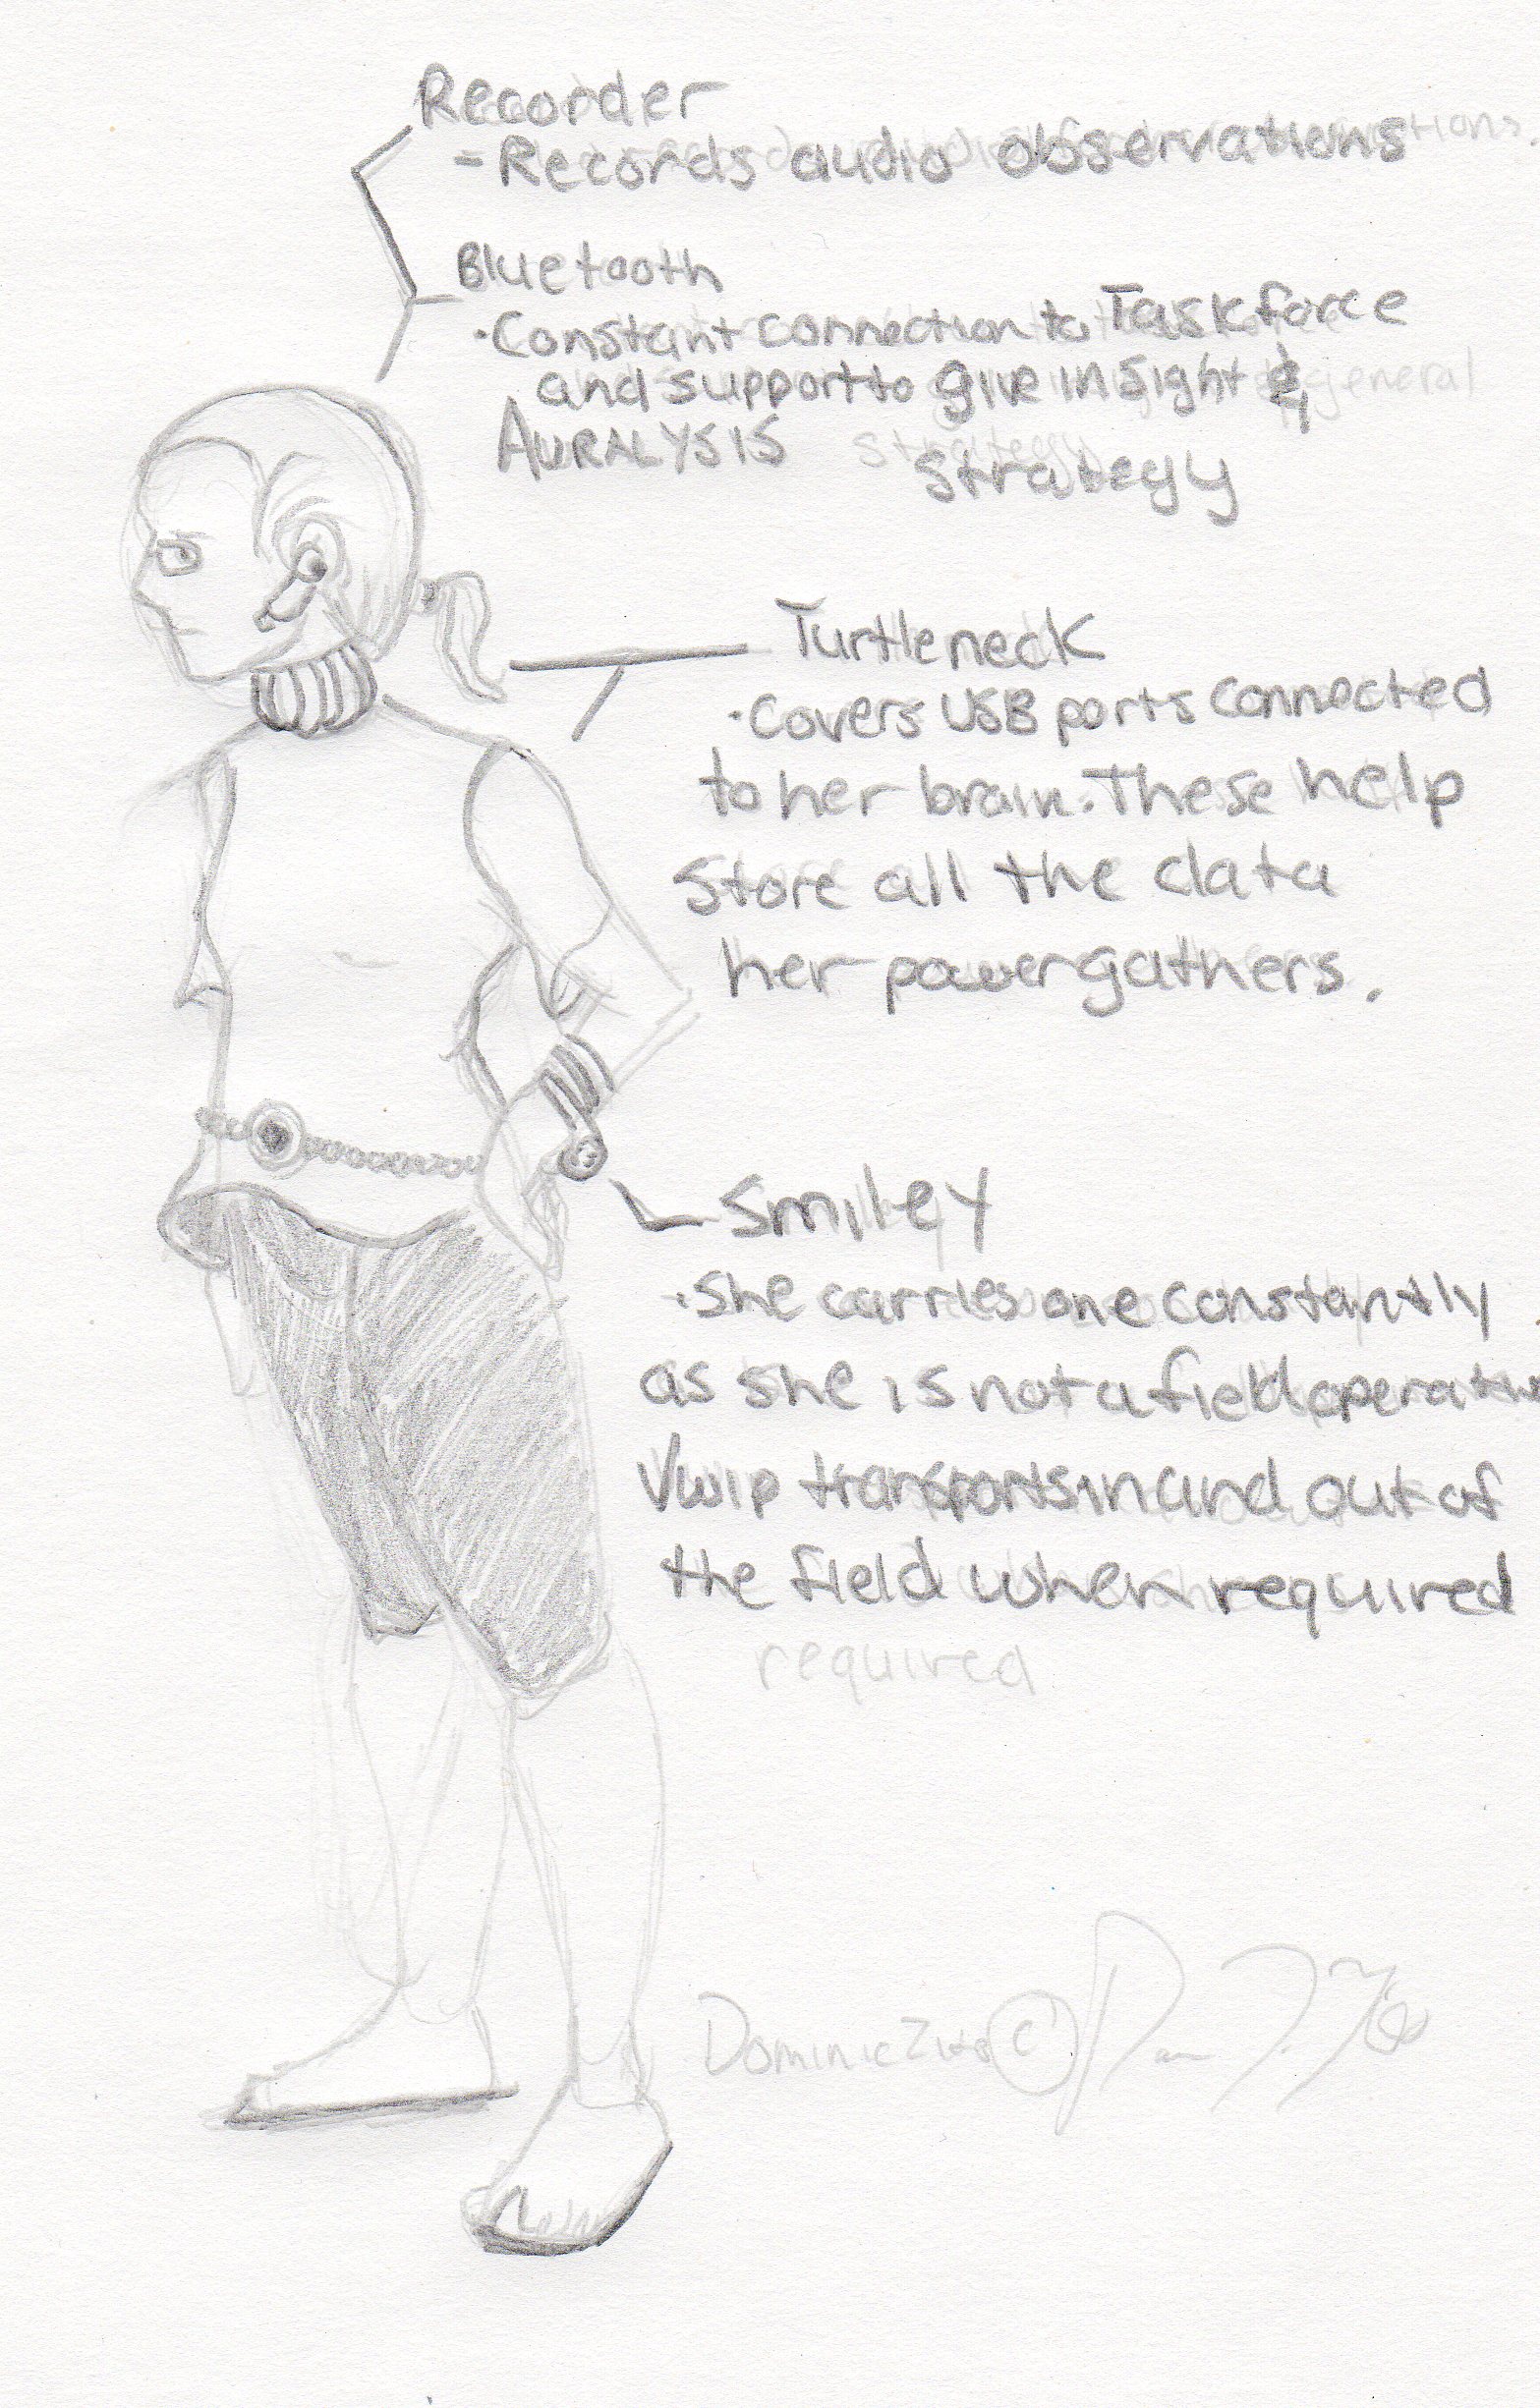 Recorder
- Records audio observations
Bluetooth
· Constant connection to Taskforce
and support to give insight &
AURALYSIS
strategy
Turtleneck
· Covers USB ports connected
to her brain. These help
store all the data
her power gathers.
Smiley
· She carries one constantly
as she is not a field operative
Vwip transports in and out of
the field when required
required
Dominic ©